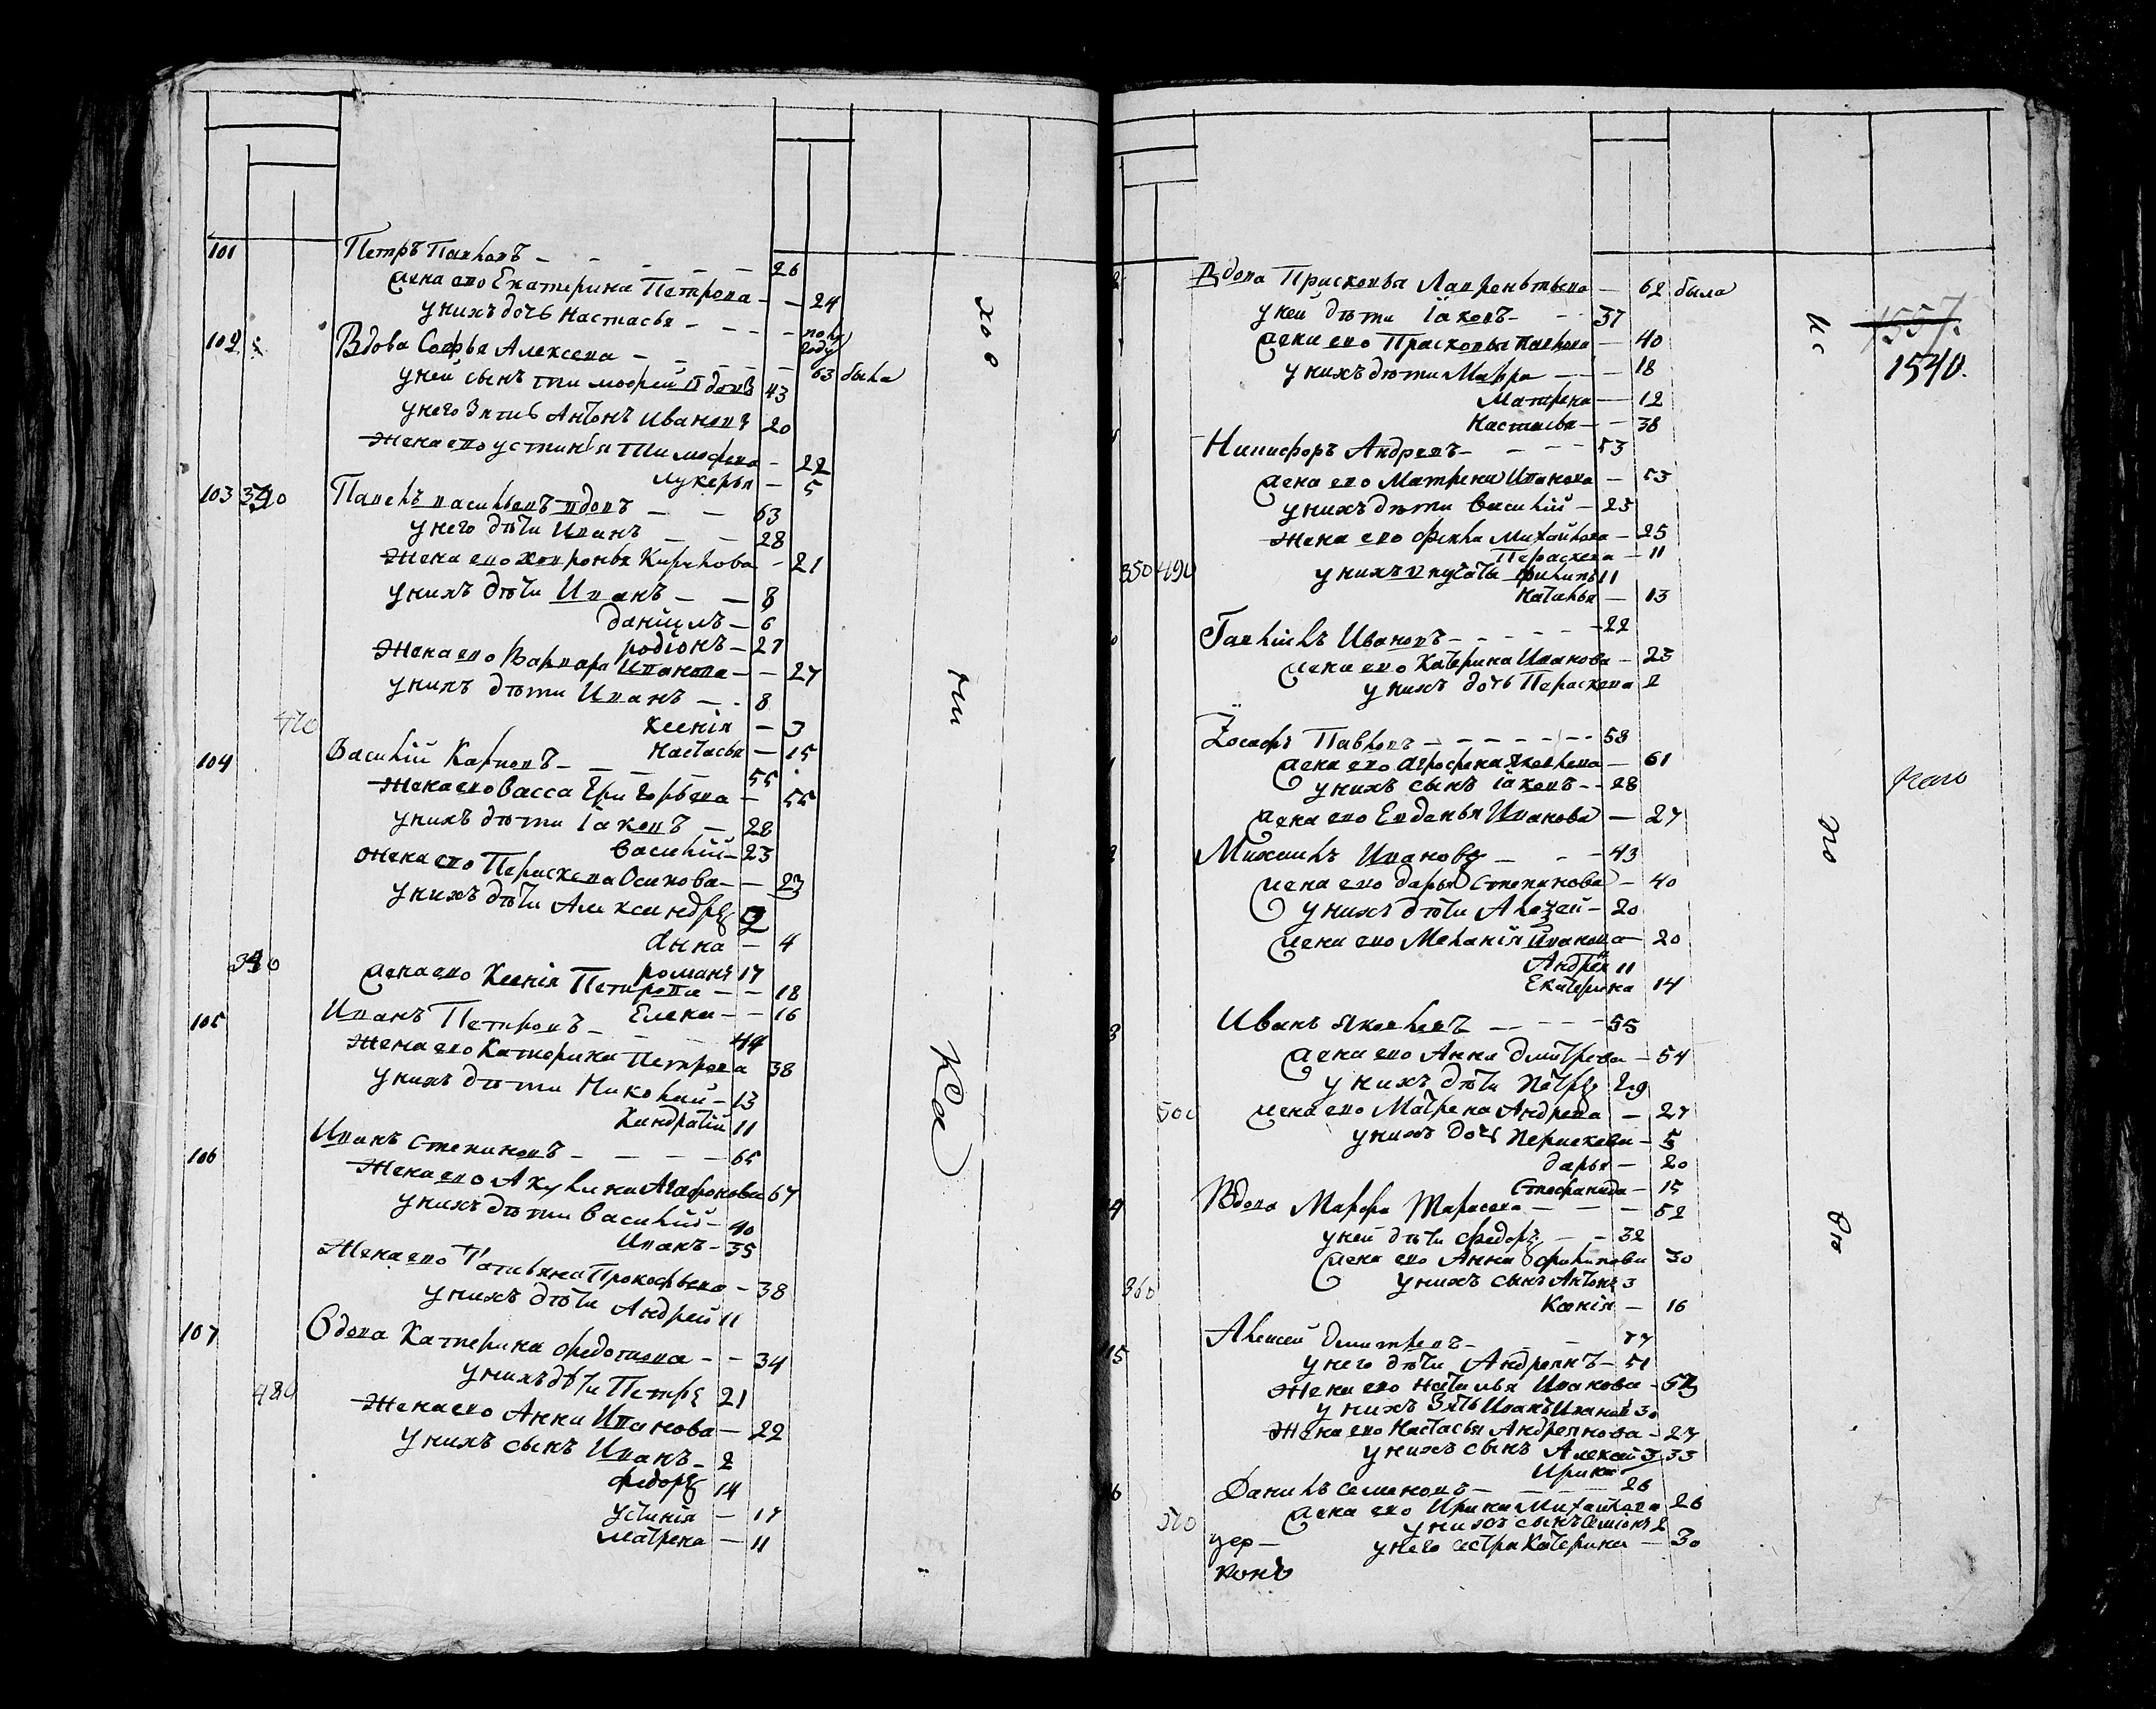 101 Петръ Павловъ – 26
жена ево Екатерина Петрова – 24
у нихъ дочь Настасья – полу году
102 Вдова Софья Алексева – 63 была
у ней сынъ Тимофей вдовъ 43
у него зять Антонъ Ивановъ 20
жена ево Устинья Тимофева – 22
Лукерья – 5
103 Павелъ Васильевъ вдовъ – 63
у него дѣти Иванъ – 28
жена ево Хавронья Кирилова – 21
у нихъ дѣти Иванъ – 8
Данiилъ – 6
Родiонъ – 27
жена ево Варвара Иванова – 27
у нихъ дѣти Иванъ – 8
470 Ксенiя – 3
Настасья – 15
104 Василiй Карповъ – 55
жена ево Васса Григорьева – 55
у нихъ дѣти Iаковъ – 28
Василiй – 23
жена ево Пераскева Осипова – 23
у нихъ дѣти Александръ 2
Анна – 4
340 Романъ 17
жена ево Ксенiя Петрова – 18
Елена – 16
105 Иванъ Петровъ – 44
жена ево Катерина Петрова 38
у нихъ дѣти Николай – 13
Кандратiй 11
106 Иванъ Степановъ – 65
жена ево Акулина Агафонова 67
у нихъ дѣти Василiй – 40
Иванъ – 35
жена ево Татьяна Прокофьева – 38
у нихъ дѣти Андрей 11
107 Вдова Катерина Федотова – 34
у нихъ дѣти Петръ 21
480 жена ево Анна Иванова – 22
у нихъ сынъ Иванъ – 2
Федоръ 14
Устинiя – 17
Матрена – 11
хоо
ти
ка
Вдова Прасковья Лаврентьева – 62 была
у ней дѣти Iаковъ – 37
жена ево Прасковья Павлова – 40
у нихъ дѣти Мавра – 18
Матрена – 12
Настасья – 38
Никифоръ Андревъ – 53
жена ево Матрена Иванова – 53
у нихъ дѣти Василiй – 25
жена ево Фекла Михайлова – 25
Перасхева – 11
350 490 у нихъ внучата Филипъ 11
Наталья – 13
Гаврiилъ Ивановъ – 22
жена ево Катерина Иванова – 23
у нихъ дочь Пераскева 2
Iосафъ Павловъ – 58
жена ево Агрофена Яковлева – 61
у нихъ сынъ Iаковъ – 28
жена ево Евданья Иванова – 27
Михаилъ Ивановъ – 43
жена ево Дарья Степанова – 40
у нихъ дѣти – 20
жена ево Меланiя Иванова – 20
Андрей 11
Екатерина 14
Иванъ Яковлевъ – 55
жена ево Анна Дмитрева – 54
у нихъ дѣти Петръ 29
500 жена ево Матрена Андрева – 27
у нихъ дочь Пераскева – 5
Дарья – 20
Стефанида – 15
Вдова Марфа Тарасова – 52
у ней дѣти Федоръ – 32
жена ево Анна Филипова 30
360 у нихъ сынъ Антонъ 3
Ксенiя – 16
Алексей Дмитревъ – 77
15 у него дѣти Андреянъ – 51
жена ево Наталья Иванова – 52
у нихъ зять Иванъ Ивановъ 30
жена ево Настасья Андреянова – 27
у нихъ сынъ Алексей 3 33
Ирина
16 Данилъ Семеновъ – 26
жена ево Ирина Михайлова 26
370 у нихъ сынъ Семiонъ 2
цер – у него сестра Катерина – 30
ковъ
Ис
по
вѣ
1557.
1540.